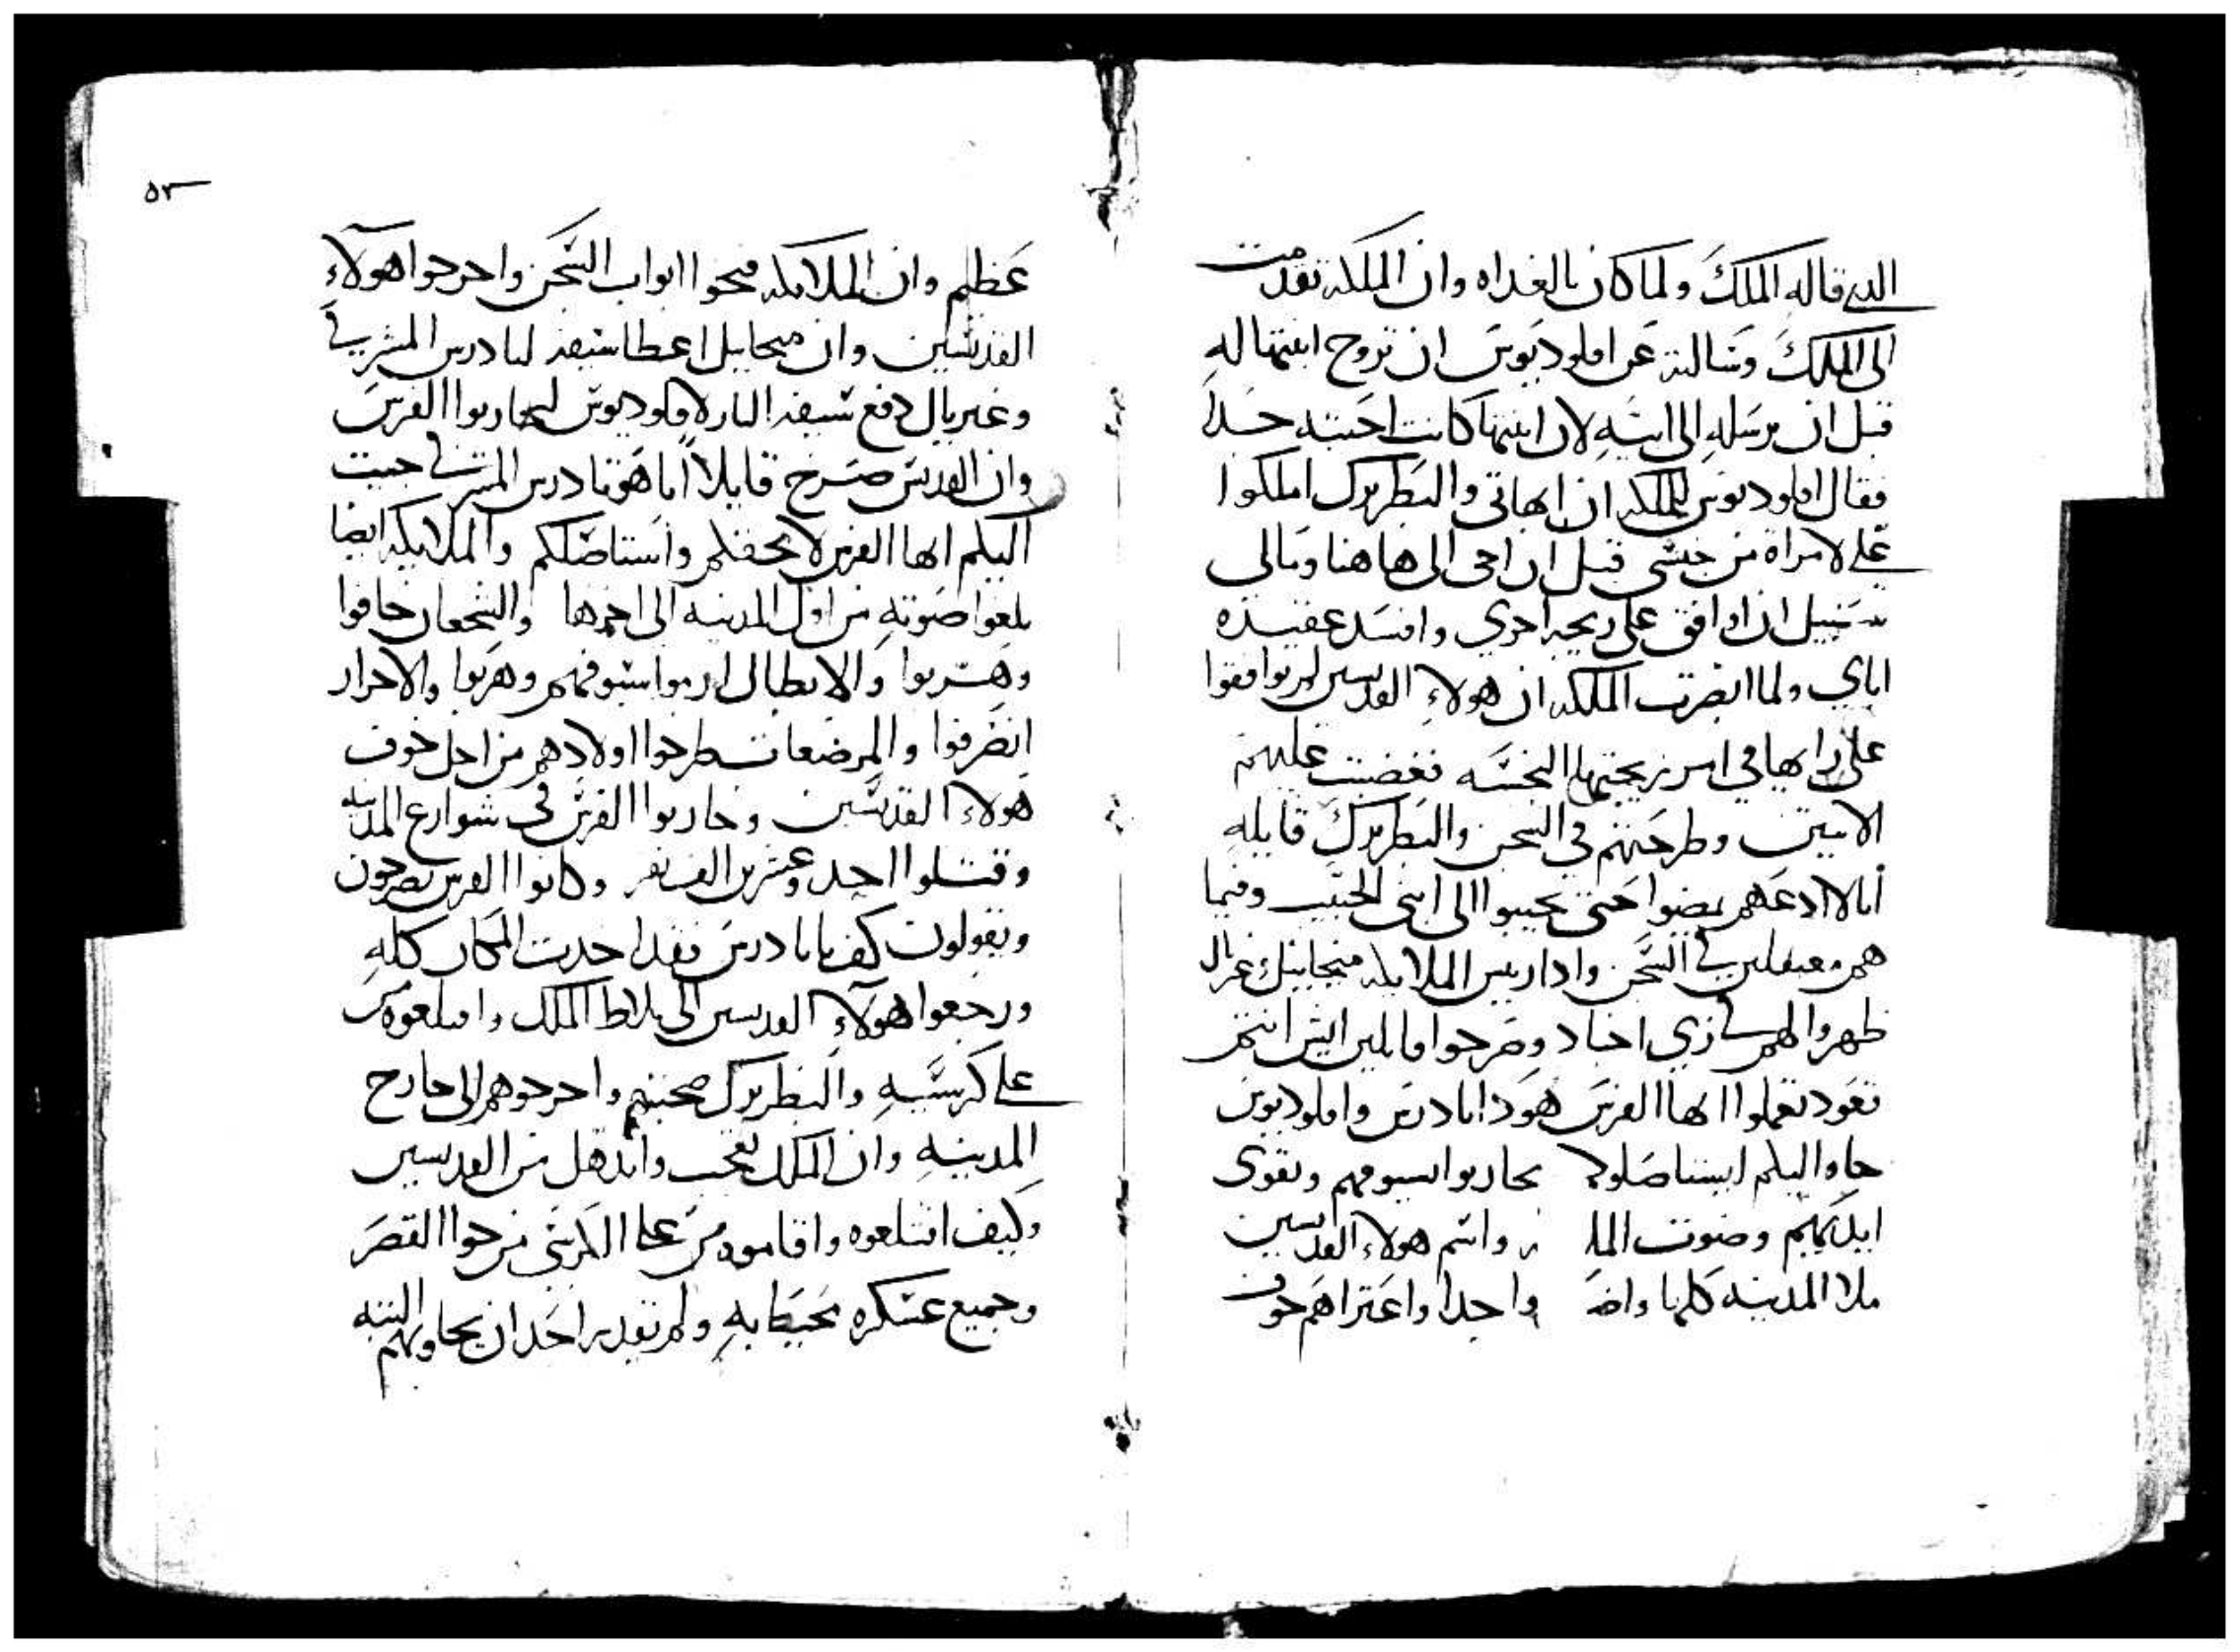 الدي قاله الملك ولما كان بالغداه وان الملكه تقدمت
الى الملك وسالته عن اقلوديوس ان تزوج ابنتها له
قبل ان يرسله الى ابيه لان ابنتها كانت احبته جدا
فقال اقلوديوس للملكه ان ابهاتي والبطريرك املكوا
علي لامراة من جنسي قبل ان اجي الى هاهنا ومالي
سبيل ان اوافق على زيجه اخري وافسد عقيدة
اباي ولما ابصرت الملكه ان هولاء القديسين لم يوافقوا
على رايها في امر زيجتها النجسه فغضبت عليهم
الاتنين وطرحتهم في السجن والبطريرك قايله
انا لا ادعهم يمضوا حتى يجيبوا الى ابني الحبيب وفيما
هم معتقلين في السجن واذا رييس الملايكه ميخاييل وغبريال
ظهروا لهم في زي اجناد وصرخوا قايلين ايش انتم
قعود تعملوا ايها الفرس هودا تادرس واقلوديوس
جاوا اليكم ليستاصلوكم يحاربوا بسيوفهم وتقوى
ايديهم وصوت الملا وانتم هولاء القديسين
ملا المدينه كلها واحدا واعتراهم خوف
٥٢
عظيم وان الملايكه فتحوا ابواب السجن واخرجوا هولاء
القديسين وان ميخاييل اعطا سيفه لتادرس المشرقي
وغبريال دفع سيفه النار لاقلوديوس ليحاربوا الفرس
وان القديس صرخ قايلا انا هو تادرس المشرقي جيت
اليكم ايها الفرس لامحقكم واستاصلكم والملايكه ايضا
بلغوا صوته من اول المدينه الى اخرها والشجعان خافوا
وهربوا والابطال ارموا سيوفهم وهربوا والاحرار
انصرفوا والمرضعات طرحوا اولادهم من اجل خوف
هولاء القديسين وحاربوا الفرس في شوارع المدينه
وقتلوا احد وعشرين الف نفر وكانوا الفرس يصرخون
ويقولون كف يا تادرس فقد اخربت المكان كله
ورجعوا هولاء القديسين الى بلاط الملك واقتلعوه من
على كرسيه والبطريرك صحبتهم واخرجوهم الى خارج
المدينه وان الملك تعجب واندهل من القديسين
وكيف اقتلعوه واقاموه من على الكرسي من جوا القصر
وجميع عسكره محيطا به ولم يقدر احد ان يجاوبهم البته